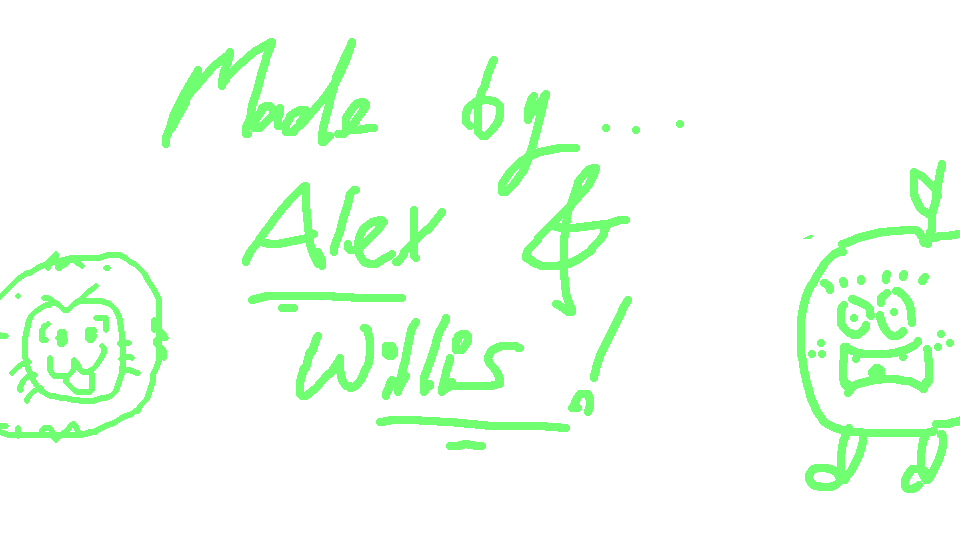 Made by...
Alex &
Willis!